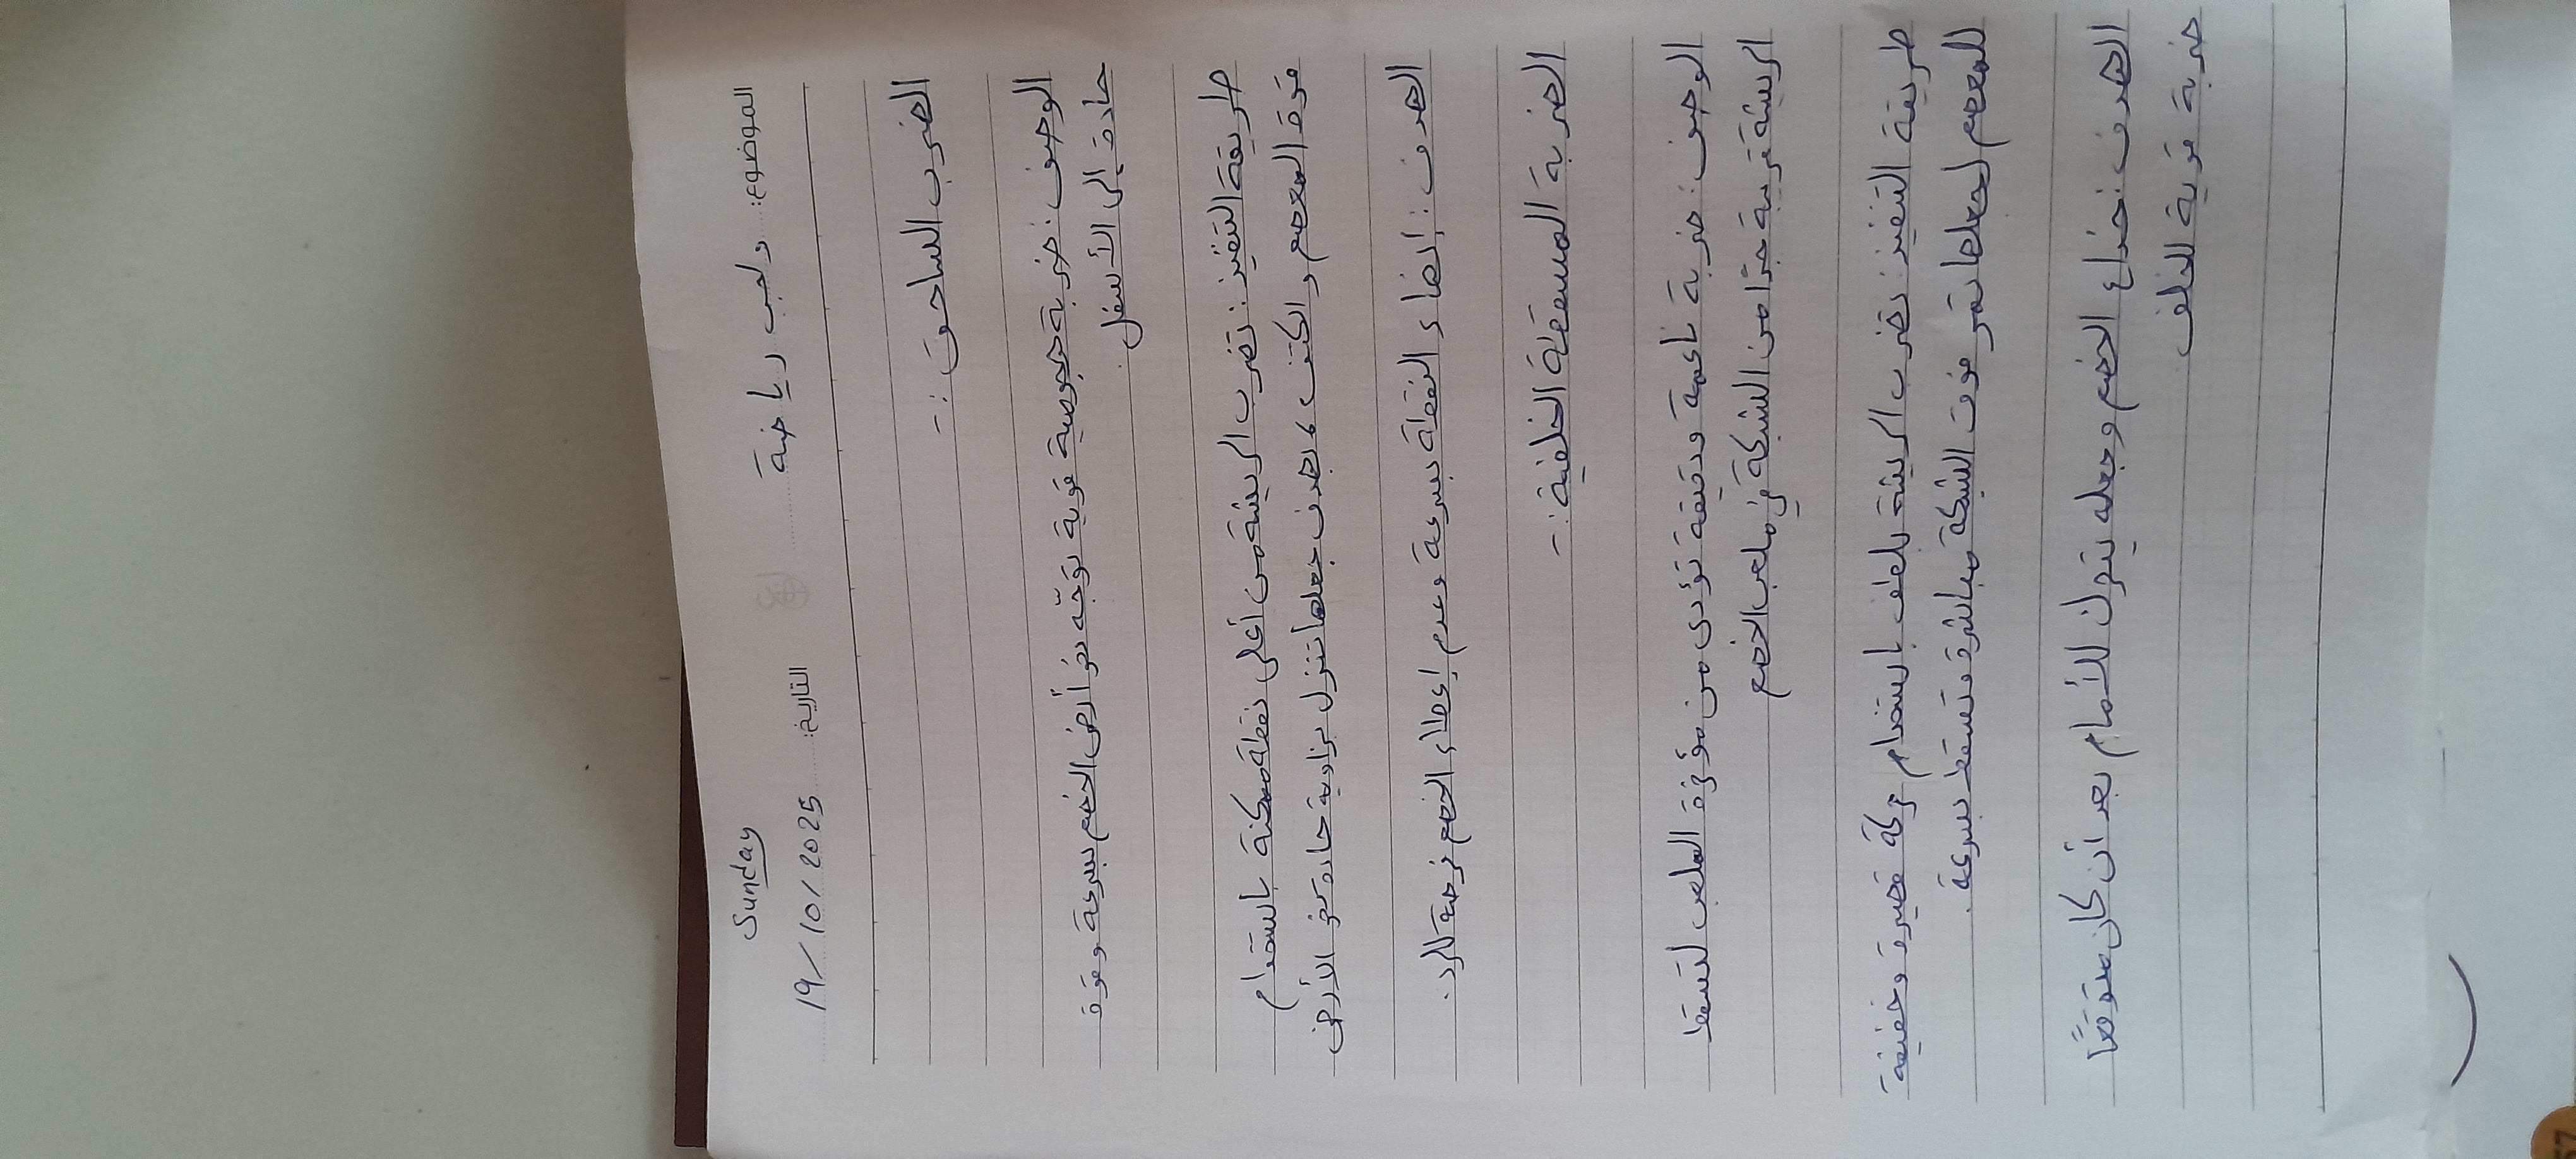 Sunday
الموضوع: واجب رياضة التاريخ: 19/10/2025
الضرب الساحق :-
الوصف : ضربة هجومية قوية توجّه نحو أرض الخصم بسرعة وقوة
حادة إلى الأسفل.
طريقة التنفيذ : تضرب الريشة من أعلى نقطة ممكنة باستخدام
قوة المعصم والكتف، بهدف جعلها تنزل بزاوية حادة نحو الأرض
الهدف : إنهاء النقطة بسرعة وعدم إعطاء الخصم فرصة للرد.
الضربة المسقطة الخلفية :-
الوصف : ضربة ناعمة ودقيقة تؤدى من مؤخرة الملعب لتسقط
الريشة قريبة جدًا من الشبكة في ملعب الخصم
طريقة التنفيذ : تضرب الريشة بلطف باستخدام حركة قصيرة وخفيفة
للمعصم لجعلها تمر فوق الشبكة مباشرة وتسقط بسرعة.
الهدف : خداع الخصم وجعله يتحرك للأمام بعد أن كان متوقعًا
ضربة قوية للخلف